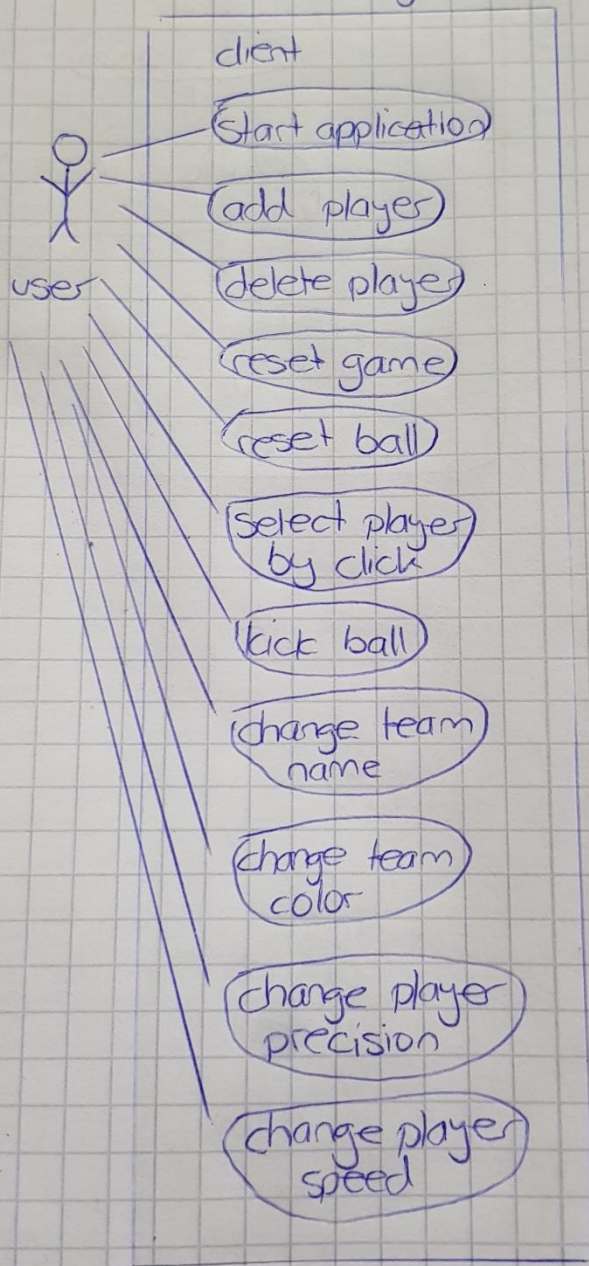 client
start application
add player
delete player
user
reset game
reset ball
select player
by click
kick ball
change team
name
change team
color
change player
precision
change player
speed